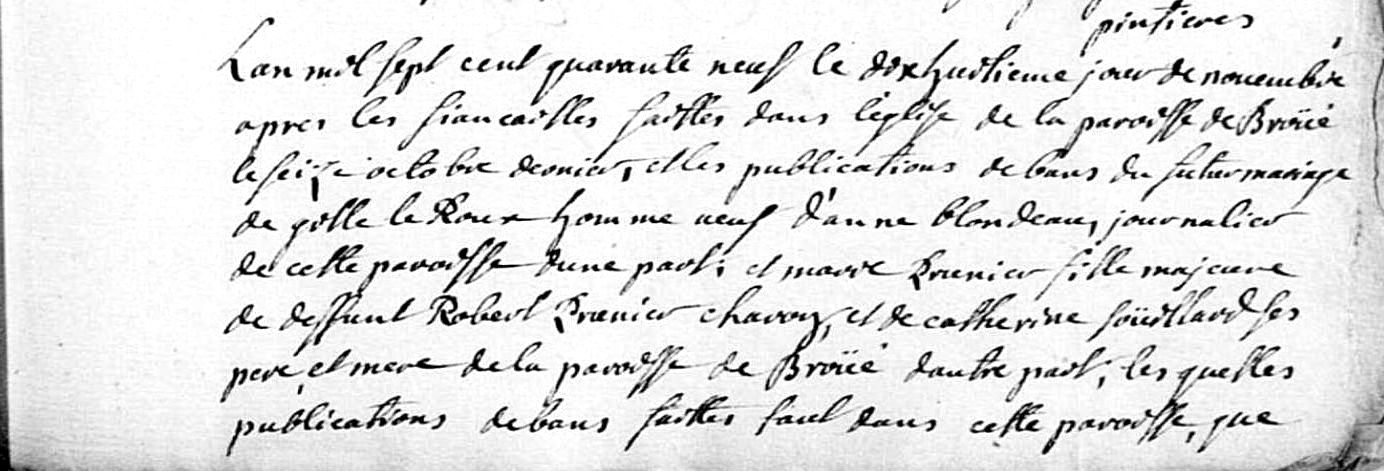 pintieres
Lan mil sept cent quarante neuf le dixhuitieme jour de novembre
apres les fiancailles faittes dans l'église de la paroisse de Broüé
le seize octobre dernier, et les publications de bans du futur mariage
de gille le Roux homme veuf d'anne blondeau, journalier
de cette paroisse dune part; et marie Prunier fille majeure
de deffunt Robert Prunier charon, et de catherine soüillard ses
pere et mere de la paroisse de Broüé dautre part; les quelles
publications de bans faittes tant dans cette paroisse, que